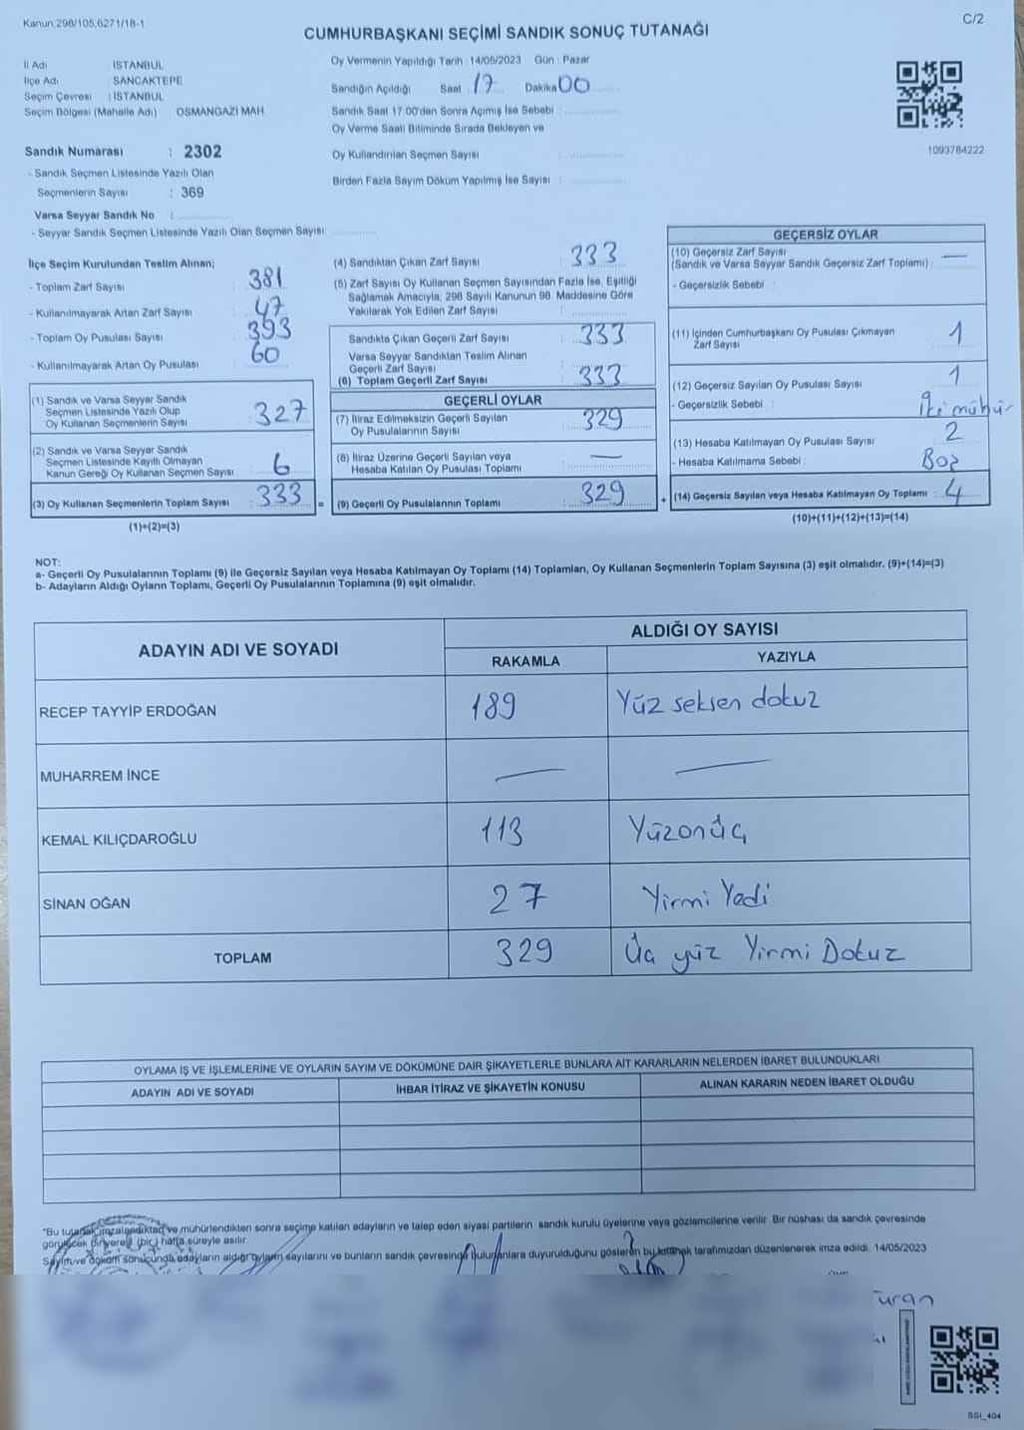 Kanun 298/105,6271/18-1
C/2
CUMHURBAŞKANI SEÇİMİ SANDIK SONUÇ TUTANAĞI
İl Adı : İSTANBUL
İlçe Adı : SANCAKTEPE
Seçim Çevresi : İSTANBUL
Seçim Bölgesi (Mahalle Adı) OSMANGAZİ MAH
Sandık Numarası : 2302
- Sandık Seçmen Listesinde Yazılı Olan
Seçmenlerin Sayısı : 369
Varsa Seyyar Sandık No :
- Seyyar Sandık Seçmen Listesinde Yazılı Olan Seçmen Sayısı:
Oy Vermenin Yapıldığı Tarih : 14/05/2023 Gün : Pazar
Sandığın Açıldığı Saat 17 Dakika 00
Sandık Saat 17:00'den Sonra Açımış İse Sebebi :
Oy Verme Saati Bitiminde Sırada Bekleyen ve
Oy Kullandırılan Seçmen Sayısı :
Birden Fazla Sayım Döküm Yapılmış İse Sayısı :
1093784222
İlçe Seçim Kurulundan Teslim Alınan;
- Toplam Zarf Sayısı 381
- Kullanılmayarak Artan Zarf Sayısı 47
- Toplam Oy Pusulası Sayısı 393
- Kullanılmayarak Artan Oy Pusulası 60
(1) Sandık ve Varsa Seyyar Sandık
Seçmen Listesinde Yazılı Olup
Oy Kullanan Seçmenlerin Sayısı 327
(2) Sandık ve Varsa Seyyar Sandık
Seçmen Listesinde Kayıtlı Olmayan
Kanun Gereği Oy Kullanan Seçmen Sayısı 6
(3) Oy Kullanan Seçmenlerin Toplam Sayısı 333 =
(1)+(2)=(3)
(4) Sandıktan Çıkan Zarf Sayısı 333
(5) Zarf Sayısı Oy Kullanan Seçmen Sayısından Fazla İse, Eşitliği
Sağlamak Amacıyla, 298 Sayılı Kanunun 98. Maddesine Göre
Yakılarak Yok Edilen Zarf Sayısı :
Sandıkta Çıkan Geçerli Zarf Sayısı 333
Varsa Seyyar Sandıktan Teslim Alınan
Geçerli Zarf Sayısı
(6) Toplam Geçerli Zarf Sayısı 333
GEÇERLİ OYLAR
(7) İtiraz Edilmeksizin Geçerli Sayılan
Oy Pusulalarının Sayısı 329
(8) İtiraz Üzerine Geçerli Sayılan veya
Hesaba Katılan Oy Pusulası Toplamı —
(9) Geçerli Oy Pusulalarının Toplamı 329 +
GEÇERSİZ OYLAR
(10) Geçersiz Zarf Sayısı
(Sandık ve Varsa Seyyar Sandık Geçersiz Zarf Toplamı) : —
- Geçersizlik Sebebi :
(11) İçinden Cumhurbaşkanı Oy Pusulası Çıkmayan
Zarf Sayısı 1
(12) Geçersiz Sayılan Oy Pusulası Sayısı 1
- Geçersizlik Sebebi : İki mühür
(13) Hesaba Katılmayan Oy Pusulası Sayısı 2
- Hesaba Katılmama Sebebi : Boş
(14) Geçersiz Sayılan veya Hesaba Katılmayan Oy Toplamı : 4
(10)+(11)+(12)+(13)=(14)
NOT:
a- Geçerli Oy Pusulalarının Toplamı (9) ile Geçersiz Sayılan veya Hesaba Katılmayan Oy Toplamı (14) Toplamları, Oy Kullanan Seçmenlerin Toplam Sayısına (3) eşit olmalıdır. (9)+(14)=(3)
b- Adayların Aldığı Oyların Toplamı, Geçerli Oy Pusulalarının Toplamına (9) eşit olmalıdır.
ADAYIN ADI VE SOYADI ALDIĞI OY SAYISI
RAKAMLA YAZIYLA
RECEP TAYYİP ERDOĞAN 189 Yüz seksen dokuz
MUHARREM İNCE — —
KEMAL KILIÇDAROĞLU 113 Yüzonüç
SİNAN OĞAN 27 Yirmi Yedi
TOPLAM 329 Üç yüz Yirmi Dokuz
OYLAMA İŞ VE İŞLEMLERİNE VE OYLARIN SAYIM VE DÖKÜMÜNE DAİR ŞİKAYETLERLE BUNLARA AİT KARARLARIN NELERDEN İBARET BULUNDUKLARI
ADAYIN ADI VE SOYADI İHBAR İTİRAZ VE ŞİKAYETİN KONUSU ALINAN KARARIN NEDEN İBARET OLDUĞU
"Bu tutanak imzalandıktan ve mühürlendikten sonra seçime katılan adayların ve talep eden siyasi partilerin sandık kurulu üyelerine veya gözlemcilerine verilir. Bir nüshası da sandık çevresinde
görülecek bir yere (bir) hafta süreyle asılır.
Sayım ve döküm sonucunda adayların aldığı oyların sayılarını ve bunların sandık çevresinde bulunanlara duyurulduğunu gösteren bu tutanak tarafımızdan düzenlenerek imza edildi. 14/05/2023
SSI_404